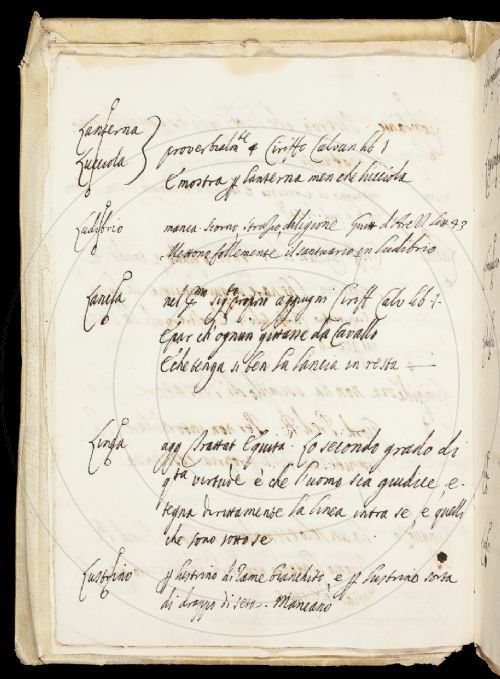 Lanterna
Lucciola
proverbialm.te + Ciriffo Calvan lib 1
E' mostra p lanterna men che lucciola
Ludibrio manca. scorno, strazio, diligione Guitt d'Ar. Lett 93
Mettono follemente il santuario en ludibrio
Lancia nel aggiugni Ciriff Calv lib 1.
E par ch'ognun giostrasse da Cavallo
E che tenga si ben la lancia in resta
Linea agg Trattat Equità. Lo secondo grado di
q.ta virtude è che l'uomo sia giudice, e
tegna dirittamente la linea intra se, e quelli
che sono sotto se
Lustrino p lustrino di rame bianchito, e p lustrino sorta
di drappo di seta. Mancano